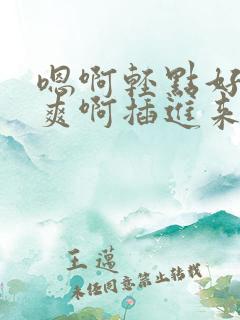 嗯啊轻點好
爽啊插進来
王邁
未经同意禁止转载